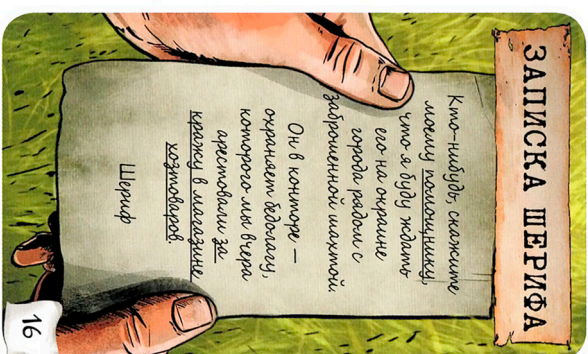 ЗАПИСКА ШЕРИФА
Кто-нибудь, скажите
моему помощнику,
что я буду ждать
его на окраине
города рядом с
заброшенной шахтой.
Он в конторе —
охраняет бедолагу,
которого мы вчера
арестовали за
кражу в магазине
хозтоваров.
Шериф
16